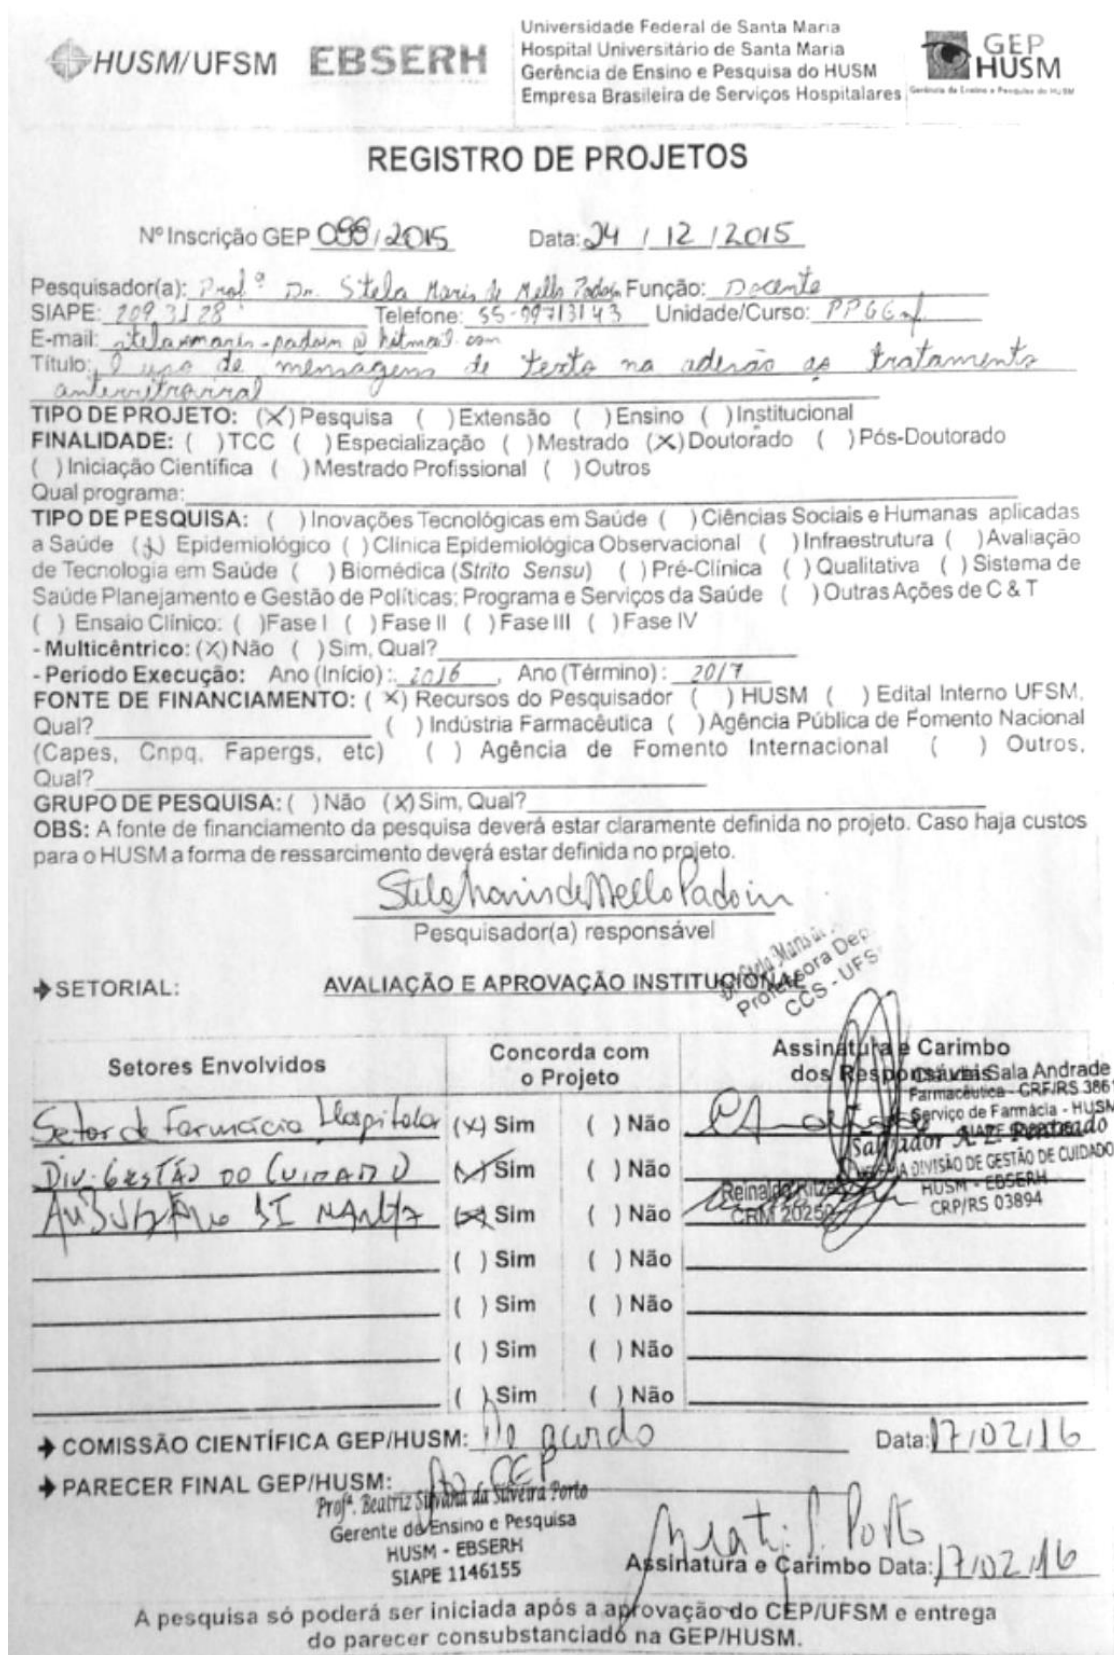 HUSM/UFSM EBSERH
Universidade Federal de Santa Maria
Hospital Universitário de Santa Maria
Gerência de Ensino e Pesquisa do HUSM
Empresa Brasileira de Serviços Hospitalares
GEP
HUSM
Gerência de Ensino e Pesquisa do HUSM
REGISTRO DE PROJETOS
Nº Inscrição GEP /2015 Data: 24 / 12 / 2015
Pesquisador(a): Profª Dr. Stela Maris de Mello Padoin Função: Docente
SIAPE: 2093128 Telefone: 55-99713143 Unidade/Curso:
E-mail: stelammaris-padoin@hotmail.com
Título: O uso de mensagens de texto na adesão ao tratamento
antirretroviral
TIPO DE PROJETO: (X) Pesquisa ( ) Extensão ( ) Ensino ( ) Institucional
FINALIDADE: ( ) TCC ( ) Especialização ( ) Mestrado (X) Doutorado ( ) Pós-Doutorado
( ) Iniciação Científica ( ) Mestrado Profissional ( ) Outros
Qual programa:
TIPO DE PESQUISA: ( ) Inovações Tecnológicas em Saúde ( ) Ciências Sociais e Humanas aplicadas
a Saúde (X) Epidemiológico ( ) Clínica Epidemiológica Observacional ( ) Infraestrutura ( ) Avaliação
de Tecnologia em Saúde ( ) Biomédica (Strito Sensu) ( ) Pré-Clínica ( ) Qualitativa ( ) Sistema de
Saúde Planejamento e Gestão de Políticas; Programa e Serviços da Saúde ( ) Outras Ações de C & T
( ) Ensaio Clínico: ( ) Fase I ( ) Fase II ( ) Fase III ( ) Fase IV
- Multicêntrico: (X) Não ( ) Sim, Qual?
- Período Execução: Ano (Início): 2016, Ano (Término): 2017
FONTE DE FINANCIAMENTO: (X) Recursos do Pesquisador ( ) HUSM ( ) Edital Interno UFSM,
Qual? ( ) Indústria Farmacêutica ( ) Agência Pública de Fomento Nacional
(Capes, Cnpq, Fapergs, etc) ( ) Agência de Fomento Internacional ( ) Outros,
Qual?
GRUPO DE PESQUISA: ( ) Não (X) Sim, Qual?
OBS: A fonte de financiamento da pesquisa deverá estar claramente definida no projeto. Caso haja custos
para o HUSM a forma de ressarcimento deverá estar definida no projeto.
Stela Maris de Mello Padoin
Pesquisador(a) responsável
Stela Maris de
Professora Dep.
CCS - UFS
SETORIAL: AVALIAÇÃO E APROVAÇÃO INSTITUCIONAL
Setores Envolvidos Concorda com o Projeto Assinatura e Carimbo dos Responsáveis
Setor de Farmácia Hospitalar (X) Sim ( ) Não
Sala Andrade
Farmacêutica - CRF/RS 3861
Serviço de Farmácia - HUSM
DIV. GESTÃO DO CUIDADO (X) Sim ( ) Não
DIVISÃO DE GESTÃO DE CUIDADO
HUSM - EBSERH
CRP/RS 03894
(X) Sim ( ) Não
Reinaldo
CRM 20250
( ) Sim ( ) Não
( ) Sim ( ) Não
( ) Sim ( ) Não
( ) Sim ( ) Não
COMISSÃO CIENTÍFICA GEP/HUSM: De acordo Data: 17/02/16
PARECER FINAL GEP/HUSM: Ao CEP
Profª. Beatriz Silvana da Silveira Porto
Gerente de Ensino e Pesquisa
HUSM - EBSERH
SIAPE 1146155
Assinatura e Carimbo Data: 17/02/16
A pesquisa só poderá ser iniciada após a aprovação do CEP/UFSM e entrega
do parecer consubstanciado na GEP/HUSM.